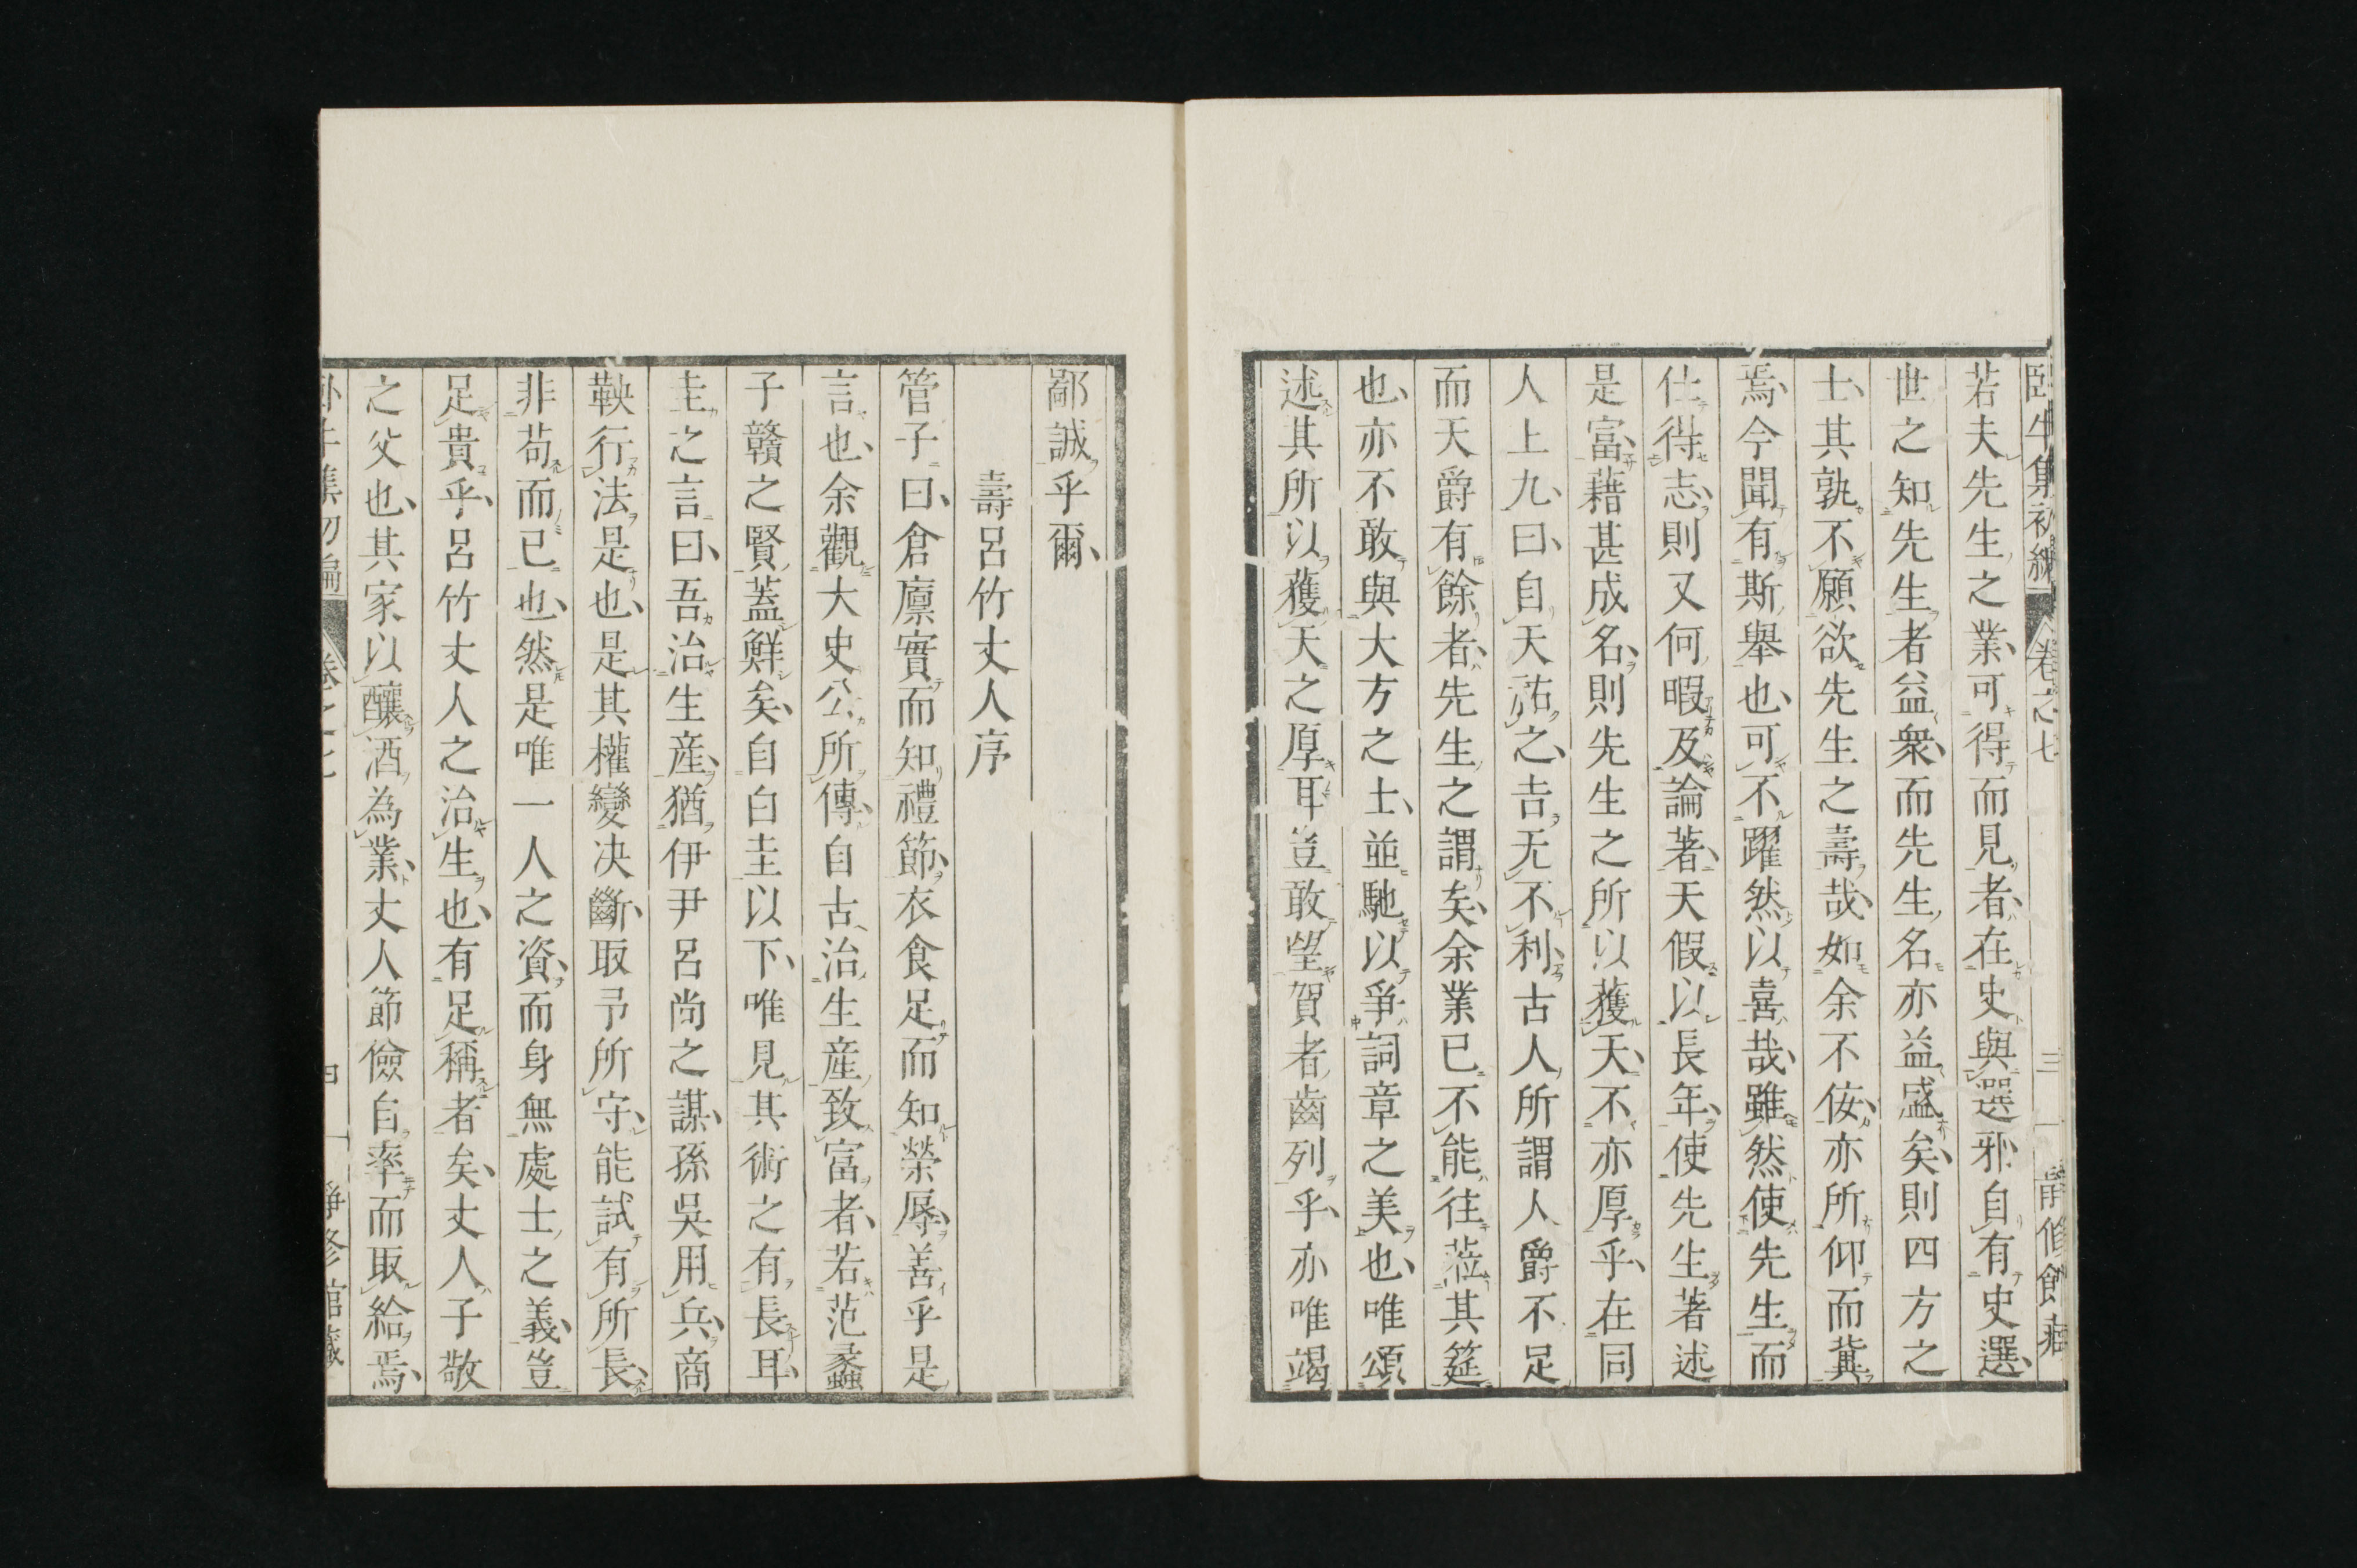 臥牛集初編 卷之七 三 靜脩館藏
若夫先生之業、可得而見者、在史與選邪、自有史選、
世之知先生者益衆、而先生名亦益盛矣、則四方之
士、其孰不願欲先生之壽哉、如余不佞、亦所仰而冀
焉、今聞有斯舉也、可不躍然以喜哉、雖然使先生而
仕得志、則又何暇及論著、天假以長年、使先生著述
是富、藉甚成名、則先生之所以獲天、不亦厚乎、在同
人上九、曰、自天祐之、吉、无不利、古人所謂人爵不足
而天爵有餘者、先生之謂矣、余業已不能往蒞其筵
也、亦不敢與大方之士、並馳以爭詞章之美也、唯頌
述其所以獲天之厚耳、豈敢望賀者齒列乎、亦唯竭
鄙誠乎爾、
壽呂竹丈人序
管子曰、倉廩實而知禮節、衣食足而知榮辱、善乎是
言也、余觀大史公所傳、自古治生産致富者、若范蠡
子贛之賢、蓋鮮矣、自白圭以下、唯見其術之有長耳、
圭之言曰、吾治生産、猶伊尹呂尚之謀、孫吳用兵、商
鞅行法是也、是其權變决斷、取予所守、能試有所長、
非苟而已也、然是唯一人之資、而身無處士之義、豈
足貴乎、呂竹丈人之治生也、有足稱者矣、丈人子敬
之父也、其家以釀酒為業、丈人節儉自率而取給焉、